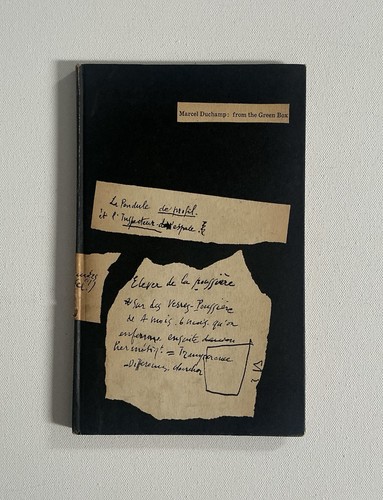 Marcel Duchamp: from the Green Box
La Pendule de profil.
et l'Inspecteur d'espace.
Elever de la poussière
sur des Verres. Poussière
de 4 mois. 6 mois. qu'on
enferme ensuite
hermétiqt = Transparence
Différences. chercher